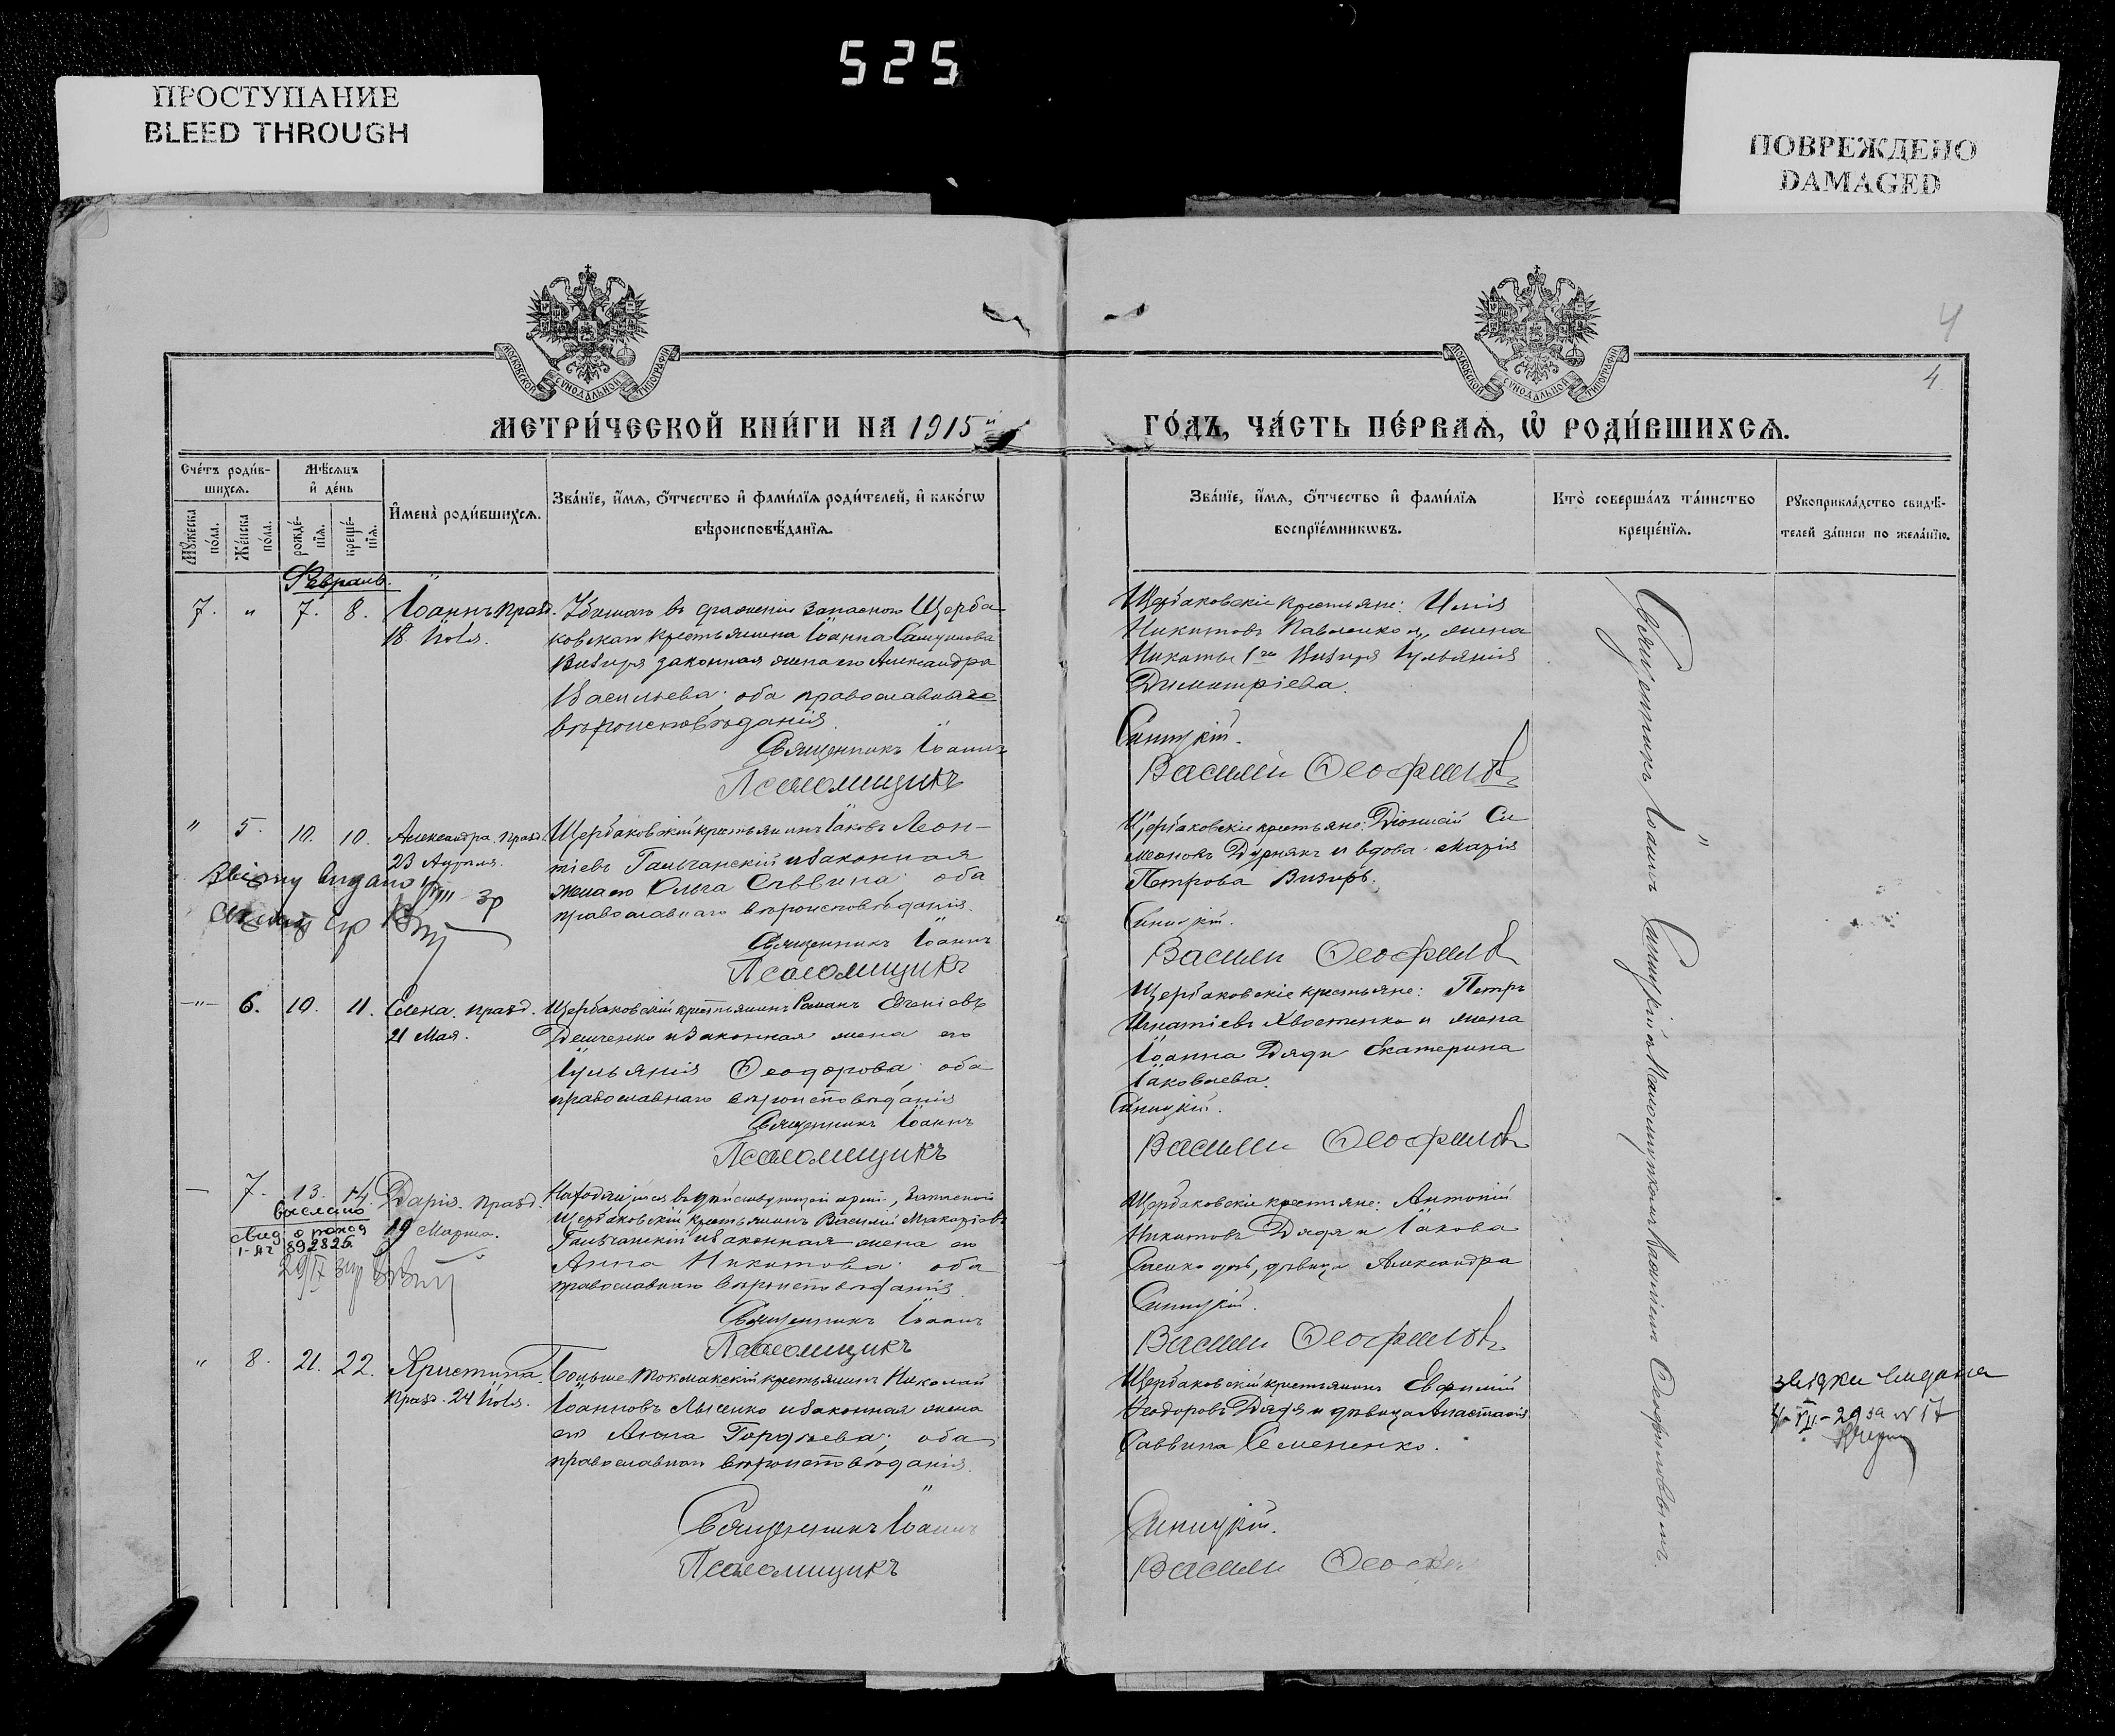 525
ПРОСТУПАНИЕ
BLEED THROUGH
ПОВРЕЖДЕНО
DAMAGED
4
4.
МОСКОВСКОЙ СѴНОДАЛЬНОЙ ТИПОГРАФІИ
МОСКОВСКОЙ СѴНОДАЛЬНОЙ ТИПОГРАФІИ
МЕТРИ́ЧЕСКОЙ КНИ́ГИ НА 1915й
ГО́ДЪ, ЧА́СТЬ ПЕ́РВАѦ, Ѽ РОДИ́ВШИХСѦ.
Сче́тъ роди́в-
шихсѧ.
Мꙋ́жеска по́ла.
Же́нска по́ла.
Мѣ́сѧцъ
и҆ де́нь
рожде́-
нїѧ.
креще́-
нїѧ.
И҆мена̀ роди́вшихсѧ.
Зва́нїе, и҆́мѧ, ѻ҆́тчество и҆ фами́лїѧ роди́телей, и҆ како́гѡ
вѣроисповѣ́данїѧ.
Зва́нїе, и҆́мѧ, ѻ҆́тчество и҆ фами́лїѧ
воспрїе́мникѡвъ.
Кто̀ соверша́лъ та́инство
креще́нїѧ.
Рꙋкоприкла́дство свидѣ́-
телей за́писи по жела́нїю.
Февраль.
7. " 7. 8. Іоаннъ празд.
18 Іюля.
Убитаго въ сраженіи запаснаго Щерба-
ковскаго крестьянина Іоанна
Визиря законная жена его Александра
Васильева; оба православнаго
вѣроисповѣданія.
Священникъ Іоаннъ
Псаломщикъ
Щербаковскіе крестьяне:
Никитовъ Павленко и жена
Никиты Визиря Іульянія
Димитріева.
Синицкій.
Василій Ѳеофиловъ
" 5. 10. 10. Александра празд.
23 Апрѣля.
Щербаковскій крестьянинъ Іаковъ Леон-
тіевъ Гальчанскій и законная
жена его Ольга Саввина; оба
православнаго вѣроисповѣданія.
Священникъ Іоаннъ
Псаломщикъ
Щербаковскіе крестьяне: Діонисій Си-
меоновъ Дурнякъ и вдова Марія
Петрова Визирь.
Синицкій.
Василій Ѳеофиловъ
-"- 6. 10. 11. Елена. празд.
21 Мая.
Щербаковскій крестьянинъ Романъ Евгеніевъ
Демченко и законная жена его
Іульянія Ѳеодорова; оба
православнаго вѣроисповѣданія
Священникъ Іоаннъ
Псаломщикъ
Щербаковскіе крестьяне: Петръ
Игнатіевъ Хвостенко и жена
Іоанна Дядя Екатерина
Іаковлева.
Синицкій.
Василій Ѳеофиловъ
— 7. 13. 14. Дарія. празд.
19 Марта.
выслано
свид. о рожд
1-ЯЧ 892825.
Находящійся въ дѣйствующей арміи, запасной
Щербаковскій крестьянинъ Василій Макаріевъ
Гальчанскій и законная жена его
Анна Никитова; оба
православнаго вѣроисповѣданія.
Священникъ Іоаннъ
Псаломщикъ
Щербаковскіе крестьяне: Антоній
Никитовъ Дядя и Іакова
дочь, дѣвица Александра
Синицкій.
Василій Ѳеофиловъ
" 8. 21. 22. Христина.
Празд. 24 Іюля.
Больше-Токмакскій крестьянинъ Николай
Іоанновъ Лысенко и законная жена
его Анна Гордѣева; оба
православнаго вѣроисповѣданія.
Священникъ Іоаннъ
Псаломщикъ
Щербаковскій крестьянинъ Евфимій
Ѳеодоровъ Дядя и дѣвица Анастасія
Саввина Семененко.
Синицкій.
Василій
Священникъ Іоаннъ Синицкій съ Псаломщикомъ Василіемъ Ѳеофиловымъ.
N 17